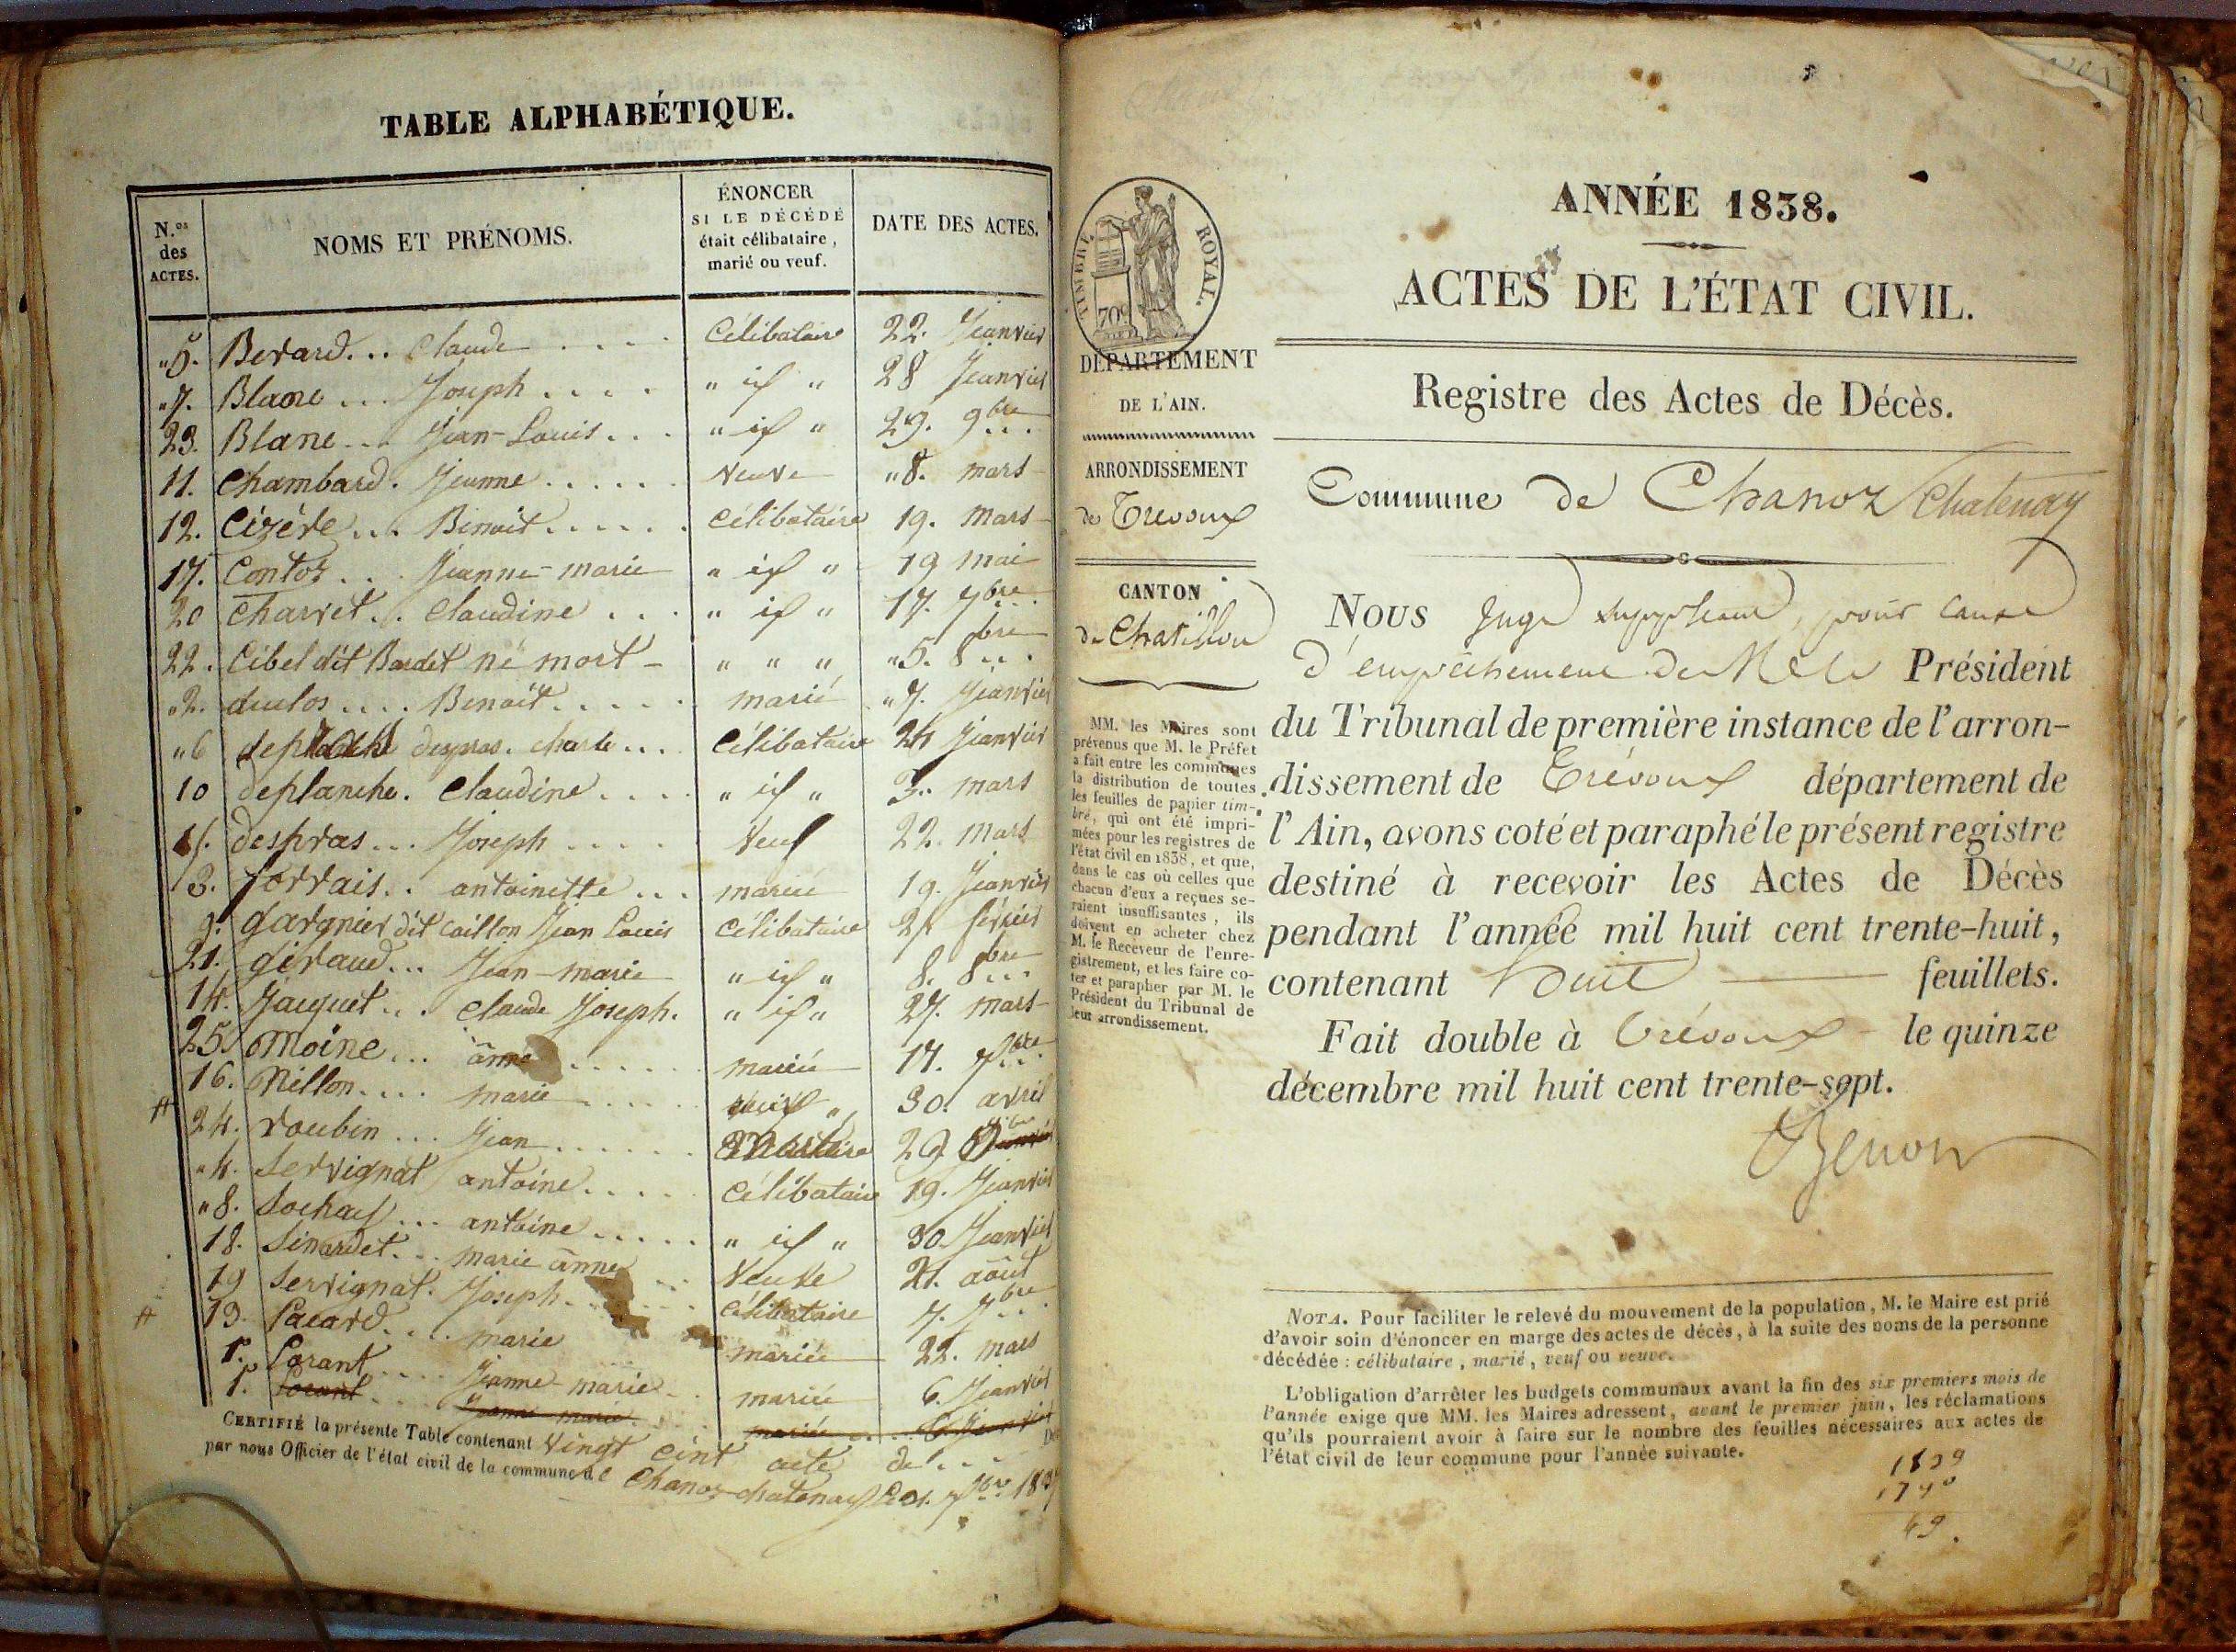 TABLE ALPHABÉTIQUE.
N.os des ACTES.
NOMS ET PRÉNOMS.
ÉNONCER SI LE DÉCÉDÉ était célibataire, marié ou veuf.
DATE DES ACTES.
"5. Berard... Claude .... Célibataire 22. Jeanvier
"7. Blanc ... Joseph .... " id " 28 Jeanvier
23. Blanc... Jean-Louis... " id " 29. 9bre...
11. Chambard. Jeanne...... veuve "8. mars
12. Cizére... Benoit..... Célibataire 19. Mars
17. Contoz... Jeanne-marie " id " 19 mai
20 Charvet.. Claudine ... " id " 17. 7bre...
22. Cibel dit Bardet né mort - " " " "5. 8bre...
"2. duclos.... Benoit..... marié "7. Jeanvier
"6 despras. charle... Célibataire 24 Jeanvier
10 deplanche. Claudine.... " id " 3.. mars
despras... Joseph .... Veuf 22. Mars
3. forrais.. antoinette... mariée 19. Jeanvier
9. gargnier dit Caillon Jean Louis Célibataire
21. giraud... Jean-marie " id " 8. 8bre...
14. Jauquet... Claude Joseph. " id " 27. mars
25. Moine... anne ...... mariée 17. 7bre...
16. Nillon.... marie ..... 30. avril
24. roubin... Jean...... 29
"4. Servignat antoine..... Célibataire 19. Jeanvier
"8. Sochay... antoine..... " id " 30. Jeanvier
18. Sinardet... marie anne Veuve 21. août
19 Servignat. Joseph. Célibataire 7. 7bre...
13. Pacard.... marie mariée 22. mars
1. Porant.... Jeanne-marie.. mariée 6. Jeanvier
1. Porant... Jeanne-marie mariée 6. Jeanvier
CERTIFIÉ la présente Table contenant Vingt cint acte de ...
par nous Officier de l'état civil de la commune de Chanoz-chatenay
TIMBRE ROYAL.
70c
DÉPARTEMENT
DE L'AIN.
ARRONDISSEMENT
de Trevoux
CANTON
de Chatillon
MM. les Maires sont
prévenus que M. le Préfet
a fait entre les communes
la distribution de toutes
les feuilles de papier tim-
bré, qui ont été impri-
mées pour les registres de
l'état civil en 1838, et que,
dans le cas où celles que
chacun d'eux a reçues se-
raient insuffisantes, ils
doivent en acheter chez
M. le Receveur de l'enre-
gistrement, et les faire co-
ter et parapher par M. le
Président du Tribunal de
leur arrondissement.
ANNÉE 1838.
ACTES DE L'ÉTAT CIVIL.
Registre des Actes de Décès.
Commune de Chanoz Chatenay
Nous Juge suppléant, pour cause
d'empêchement de M. le Président
du Tribunal de première instance de l'arron-
dissement de Trévoux département de
l'Ain, avons coté et paraphé le présent registre
destiné à recevoir les Actes de Décès
pendant l'année mil huit cent trente-huit,
contenant huit feuillets.
Fait double à Trévoux le quinze
décembre mil huit cent trente-sept.
NOTA. Pour faciliter le relevé du mouvement de la population, M. le Maire est prié
d'avoir soin d'énoncer en marge des actes de décès, à la suite des noms de la personne
décédée : célibataire, marié, veuf ou veuve.
L'obligation d'arrêter les budgets communaux avant la fin des six premiers mois de
l'année exige que MM. les Maires adressent, avant le premier juin, les réclamations
qu'ils pourraient avoir à faire sur le nombre des feuilles nécessaires aux actes de
l'état civil de leur commune pour l'année suivante.
1839
1790
49.